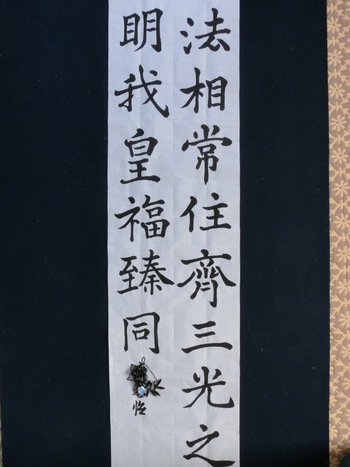 法相常住齊三光之
明我皇福臻同
怡